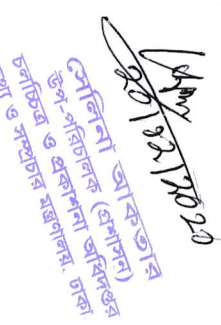 20/12/2020
সেলিনা আক্তার
উপ-পরিচালক (প্রশাসন)
চলচ্চিত্র ও প্রকাশনা অধিদপ্তর
তথ্য ও সম্প্রচার মন্ত্রণালয়, ঢাকা